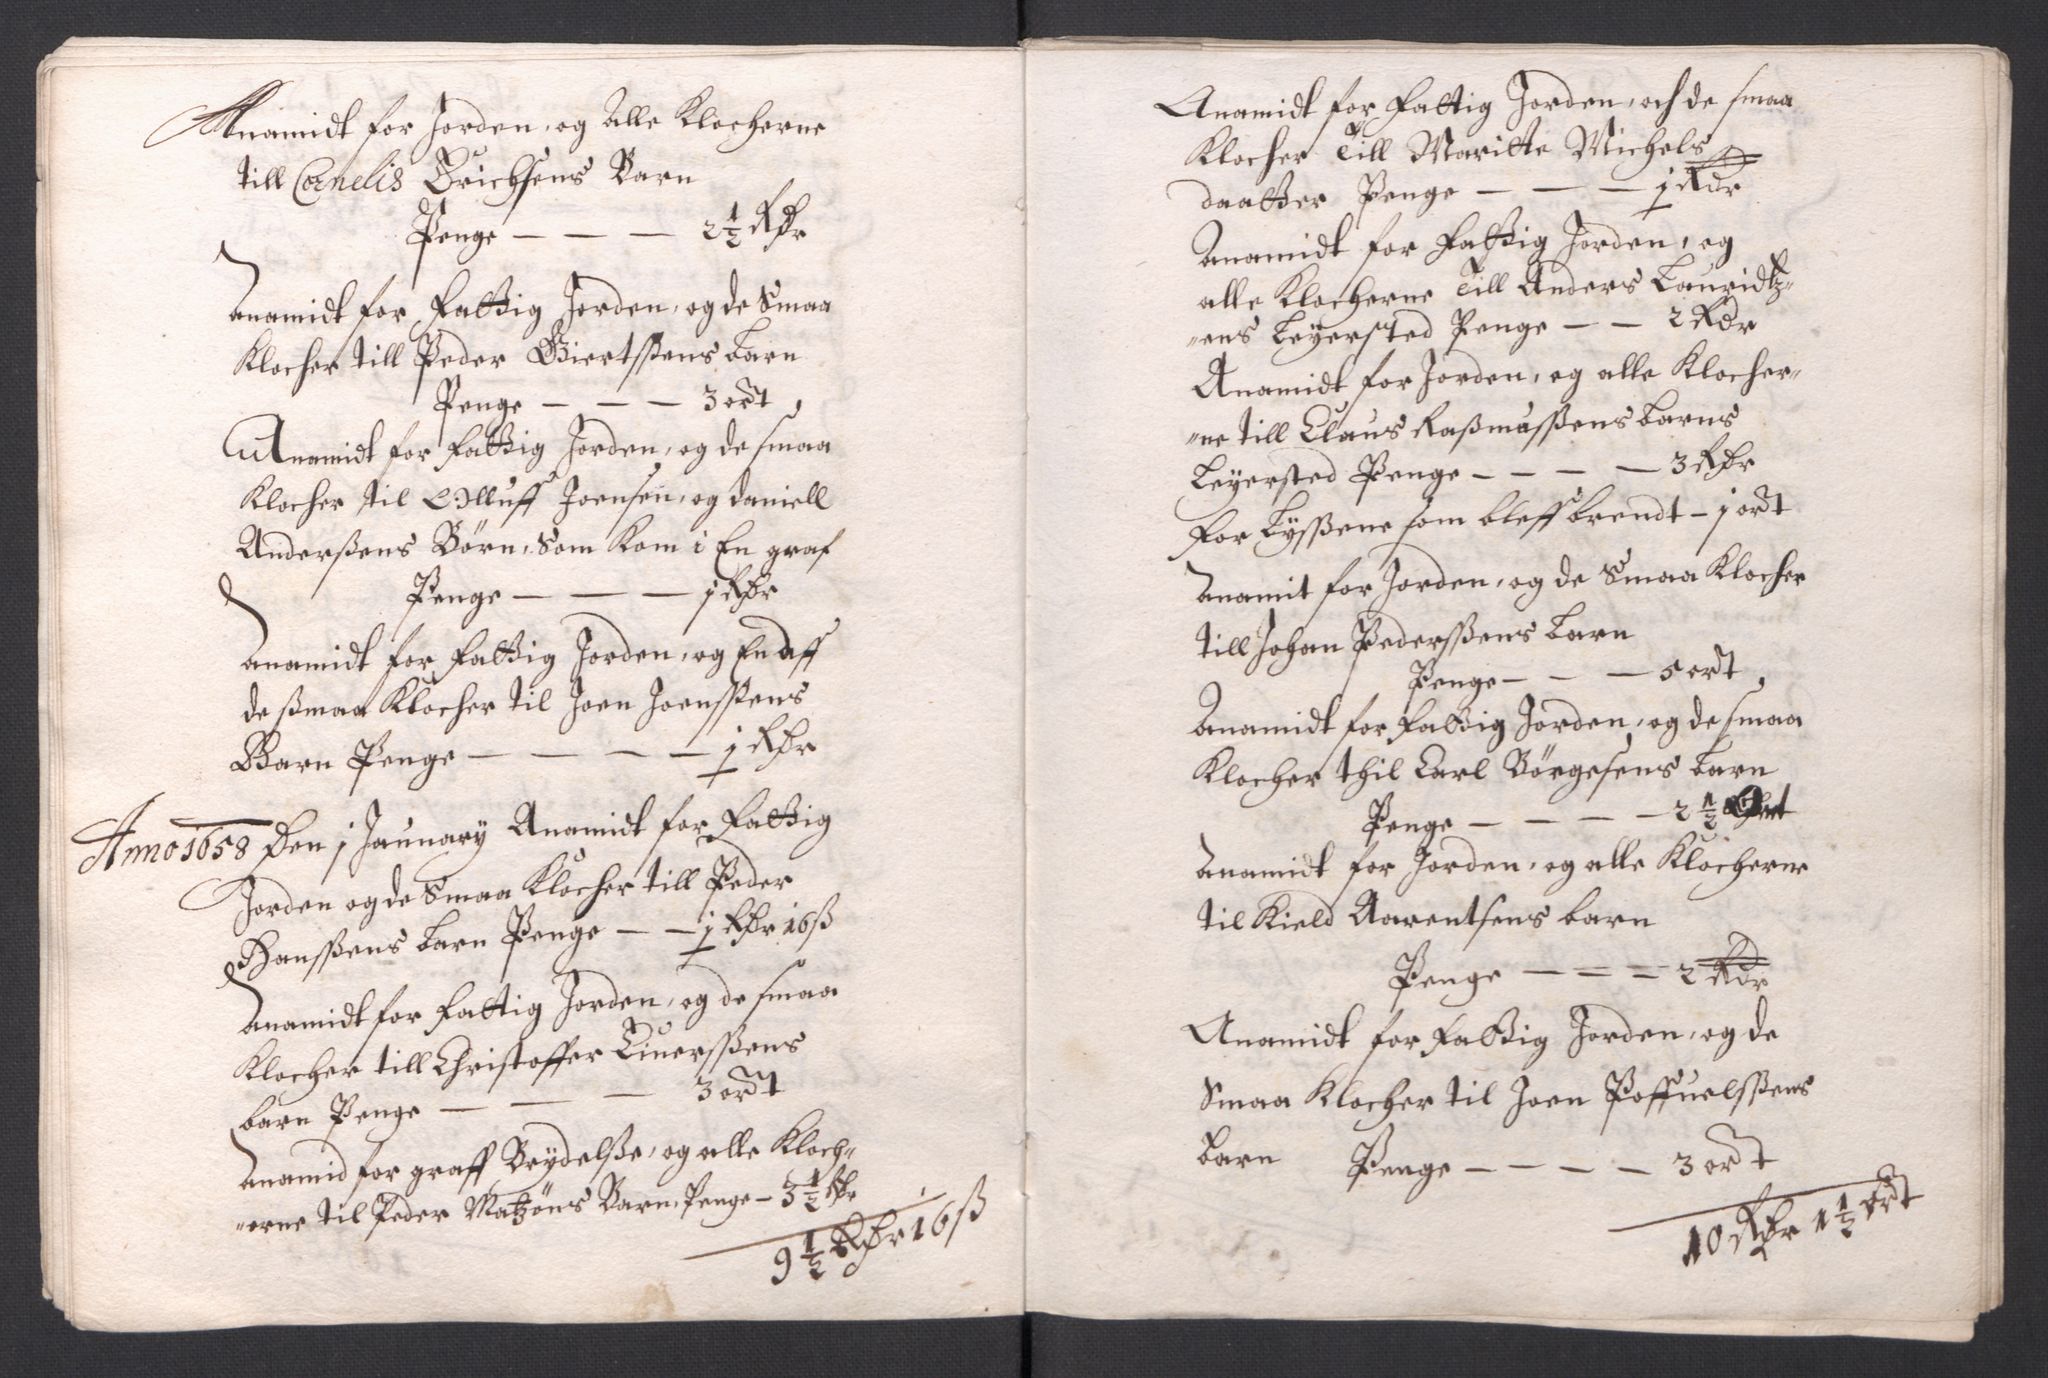 Anamidt for Jorden, og alle Klocherne
till Cornelis Erichsens Barn
Penge — — — 2 1/2 Rdr
Anamidt for Fattig Jorden, og de Smaa
Klocher till Peder Giertßens barn
Penge — — — 3 ort
Anamidt for Fattig Jorden, og de smaa
Klocher til Olluff Joensen, og daniell
Anderßens Börn, Som Kom i En graf
Penge — — — 1 Rdr
Anamidt for Fattig Jorden, og En aff
de ßmaa Klocher til Joen Joensßens
Barn Penge — — — — 1 Rdr
Anno 1658 Den 1 Jaunary Anamidt for Fattig
Jorden og de Smaa Klocher till Peder
Hansßens barn Penge — — 1 Rdr 16 ß
Anamidt for Fattig Jorden, og de smaa
Klocher till Christoffer Siuerßens
barn Penge — — — 3 ort
Anamid for graff Brydelße, og alle Kloch„
„erne til Peder Matzöns Barn, Penge — 3 1/2 Rdr
9 1/2 Rdr 16 ß
Anamidt for Fattig Jorden, och de smaa
Klocher Till Maritte Michels
daatter Penge — — — 1 Rdr
Anamidt for Fattig Jorden, og
alle Klocherne Till Anders Lauridtz„
„ens Leyersted Penge — — 2 Rdr
Anamidt for Jorden, og alle Klocher„
„ne till Claus Raßmußens barns
Leyersted Penge — — — — 3 Rdr
For Lysßene som bleff brendt — 1 ort
Anamit for Jorden, og de Smaa Klocher
till Johan Pedersßens barn
Penge — — — 5 ort
Anamidt for Fattig Jorden, og de smaa
Klocher thil Carl Börgesens barn
Penge — — — — 2 1/2 ort
Anamidt for Jorden, og alle Klocherne
til Kield Aarentsens barn
Penge — — — 2 Rdr
Anamidt for Fattig Jorden, og de
Smaa Klocher til Joen Poffuelsßens
barn Penge — — — — 3 ort
10 Rdr 1 1/2 ort